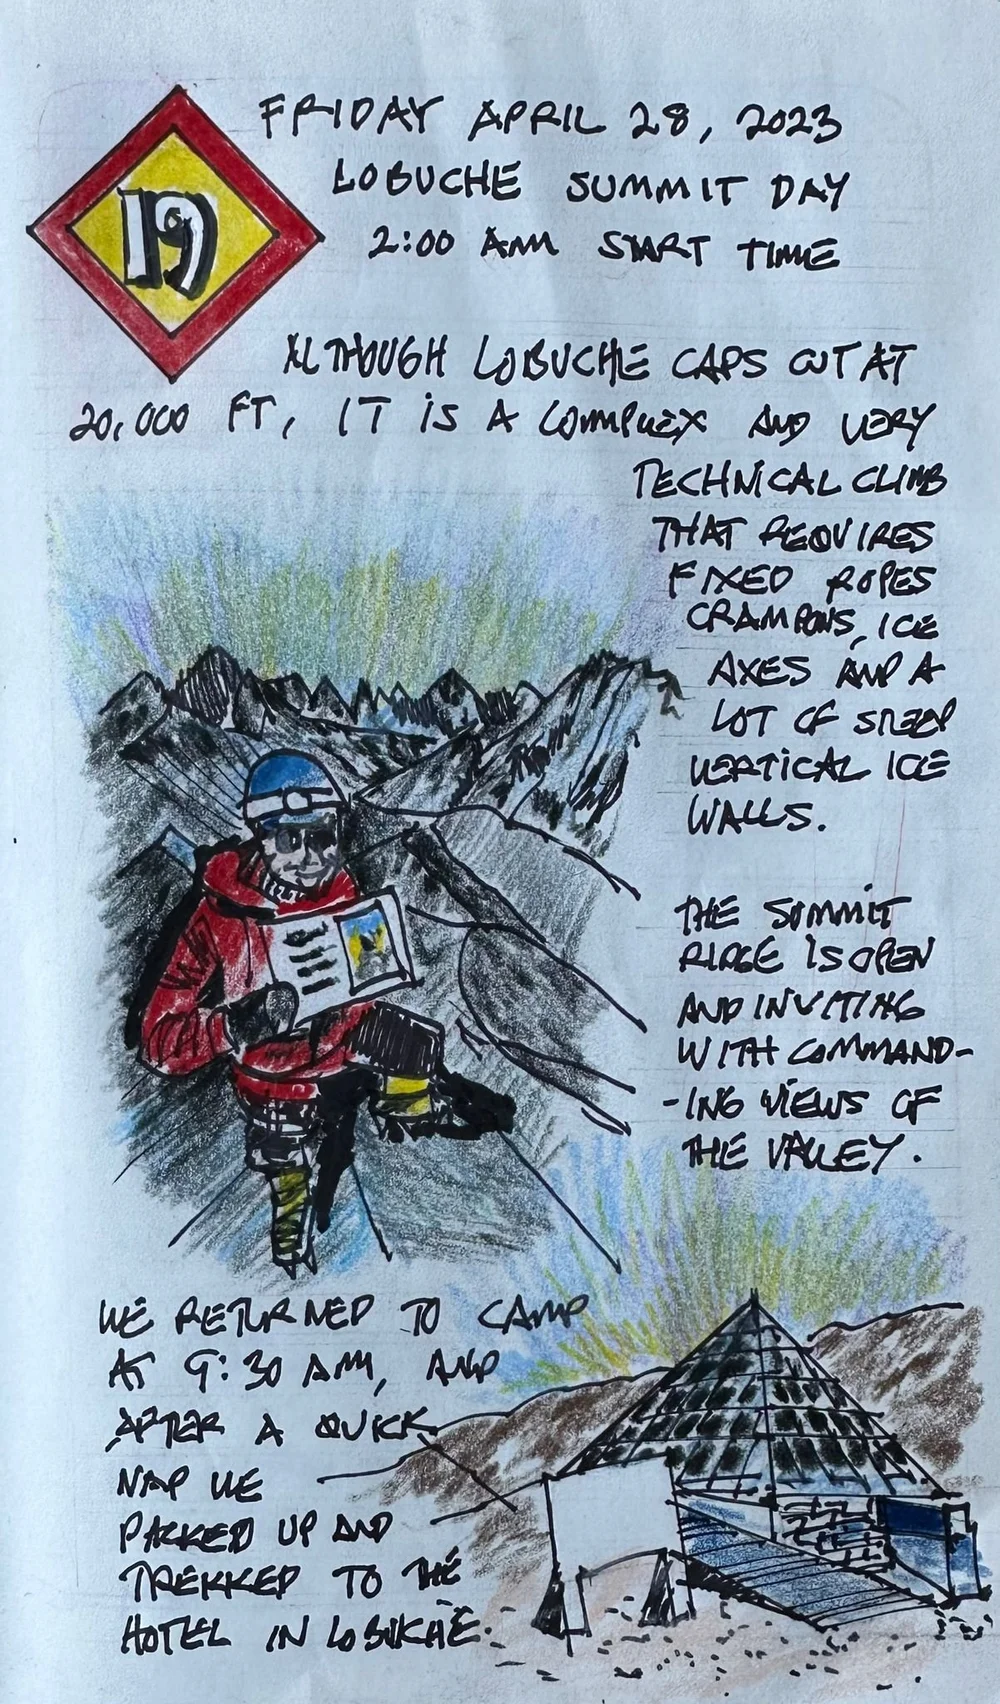 19
FRIDAY APRIL 28, 2023
LOBUCHE SUMMIT DAY
2:00 AM START TIME
ALTHOUGH LOBUCHE CAPS OUT AT
20,000 FT, IT IS A COMPLEX AND VERY
TECHNICAL CLIMB
THAT REQUIRES
FIXED ROPES
CRAMPONS, ICE
AXES AND A
LOT OF STEEP
VERTICAL ICE
WALLS.
THE SUMMIT
RIDGE IS OPEN
AND INVITING
WITH COMMAND-
-ING VIEWS OF
THE VALLEY.
WE RETURNED TO CAMP
AT 9:30 AM, AND
AFTER A QUICK
NAP WE
PACKED UP AND
TREKKED TO THE
HOTEL IN LOBUCHE.